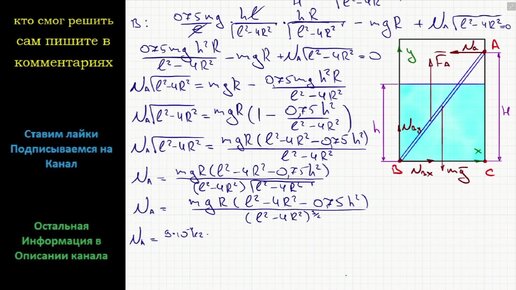 кто смог решить
сам пишите в
комментариях
Ставим лайки
Подписываемся на
Канал
Остальная
Информация в
Описании канала
B: 0,75mg/ℓ · hℓ/√(ℓ²-4R²) · hR/√(ℓ²-4R²) - mgR + N_A√(ℓ²-4R²) = 0
0,75mg h²R/(ℓ²-4R²) - mgR + N_A√(ℓ²-4R²) = 0
N_A√(ℓ²-4R²) = mgR - 0,75mg h²R/(ℓ²-4R²)
N_A√(ℓ²-4R²) = mgR(1 - 0,75h²/(ℓ²-4R²))
N_A√(ℓ²-4R²) = mgR(ℓ²-4R²-0,75h²)/(ℓ²-4R²)
N_A = mgR(ℓ²-4R²-0,75h²)/((ℓ²-4R²)√(ℓ²-4R²))
N_A = mgR(ℓ²-4R²-0,75h²)/(ℓ²-4R²)^3/2
y
F_A
N_A
A
h
H
N_By
x
B
N_Bx
mg
C